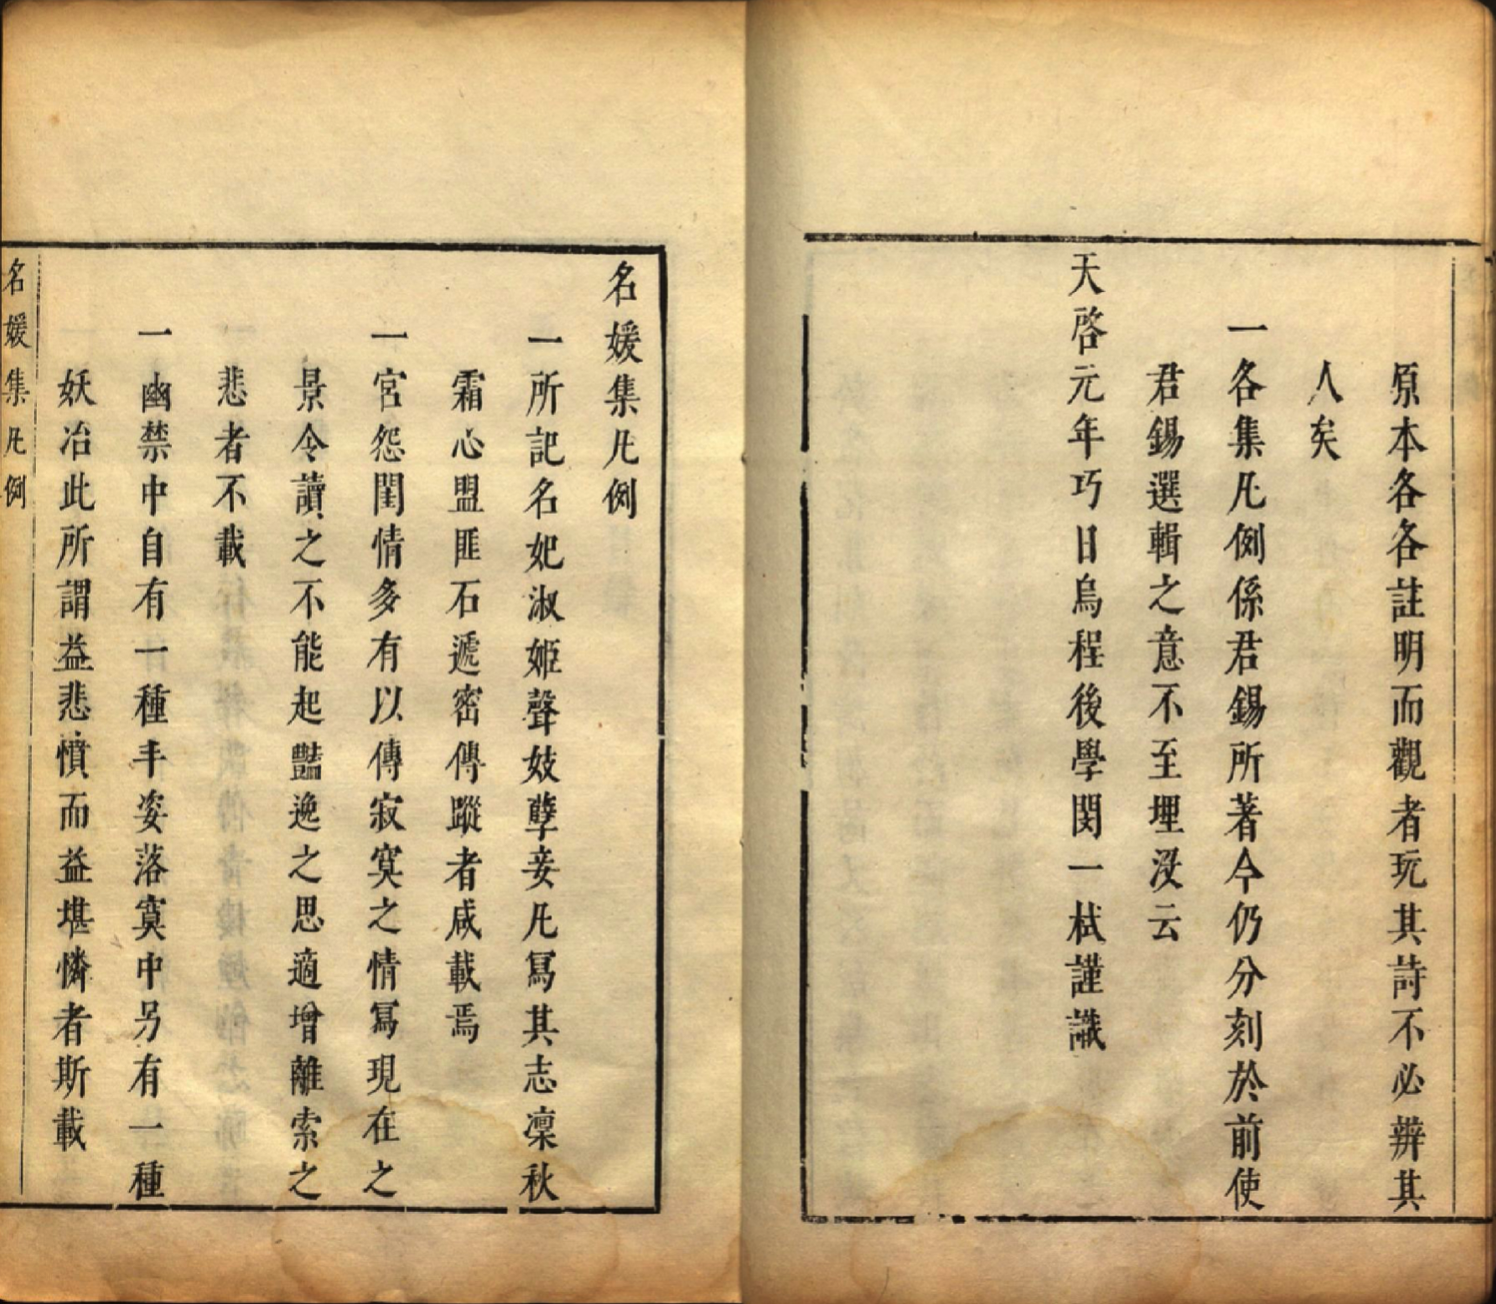 原本各各註明而觀者玩其詩不必辨其
人矣
一各集凡例係君錫所著今仍分刻於前使
君錫選輯之意不至埋沒云
天啓元年巧日烏程後學閔一栻謹識
名媛集凡例
一所記名妃淑姬聲妓孽妾凡寫其志凜秋
霜心盟匪石遞密傳蹤者咸載焉
一宮怨閨情多有以傳寂寞之情寫現在之
景令讀之不能起豔逸之思適增離索之
悲者不載
一幽禁中自有一種丰姿落寞中另有一種
妖冶此所謂益悲憤而益堪憐者斯載
名媛集凡例